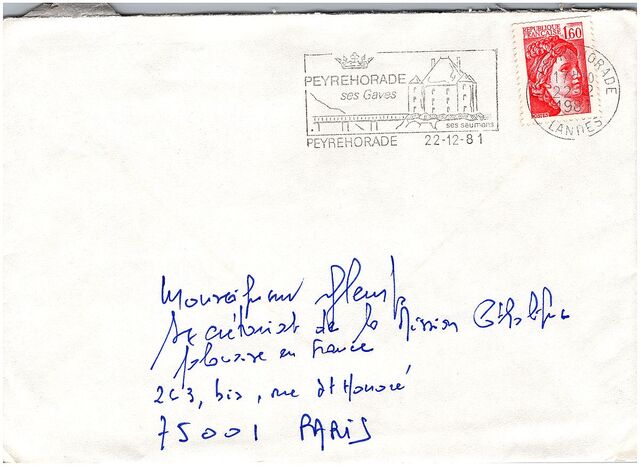 PEYREHORADE
ses Gaves
ses saumons
PEYREHORADE 22-12-81
REPUBLIQUE FRANÇAISE 1,60
POSTES
LANDES
Monseigneur
Secrétariat de la Mission Catholique
polonaise en France
263, bis, rue St Honoré
75001 PARIS